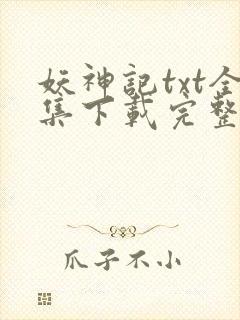 妖神記txt全
集下載完整
爪子不小